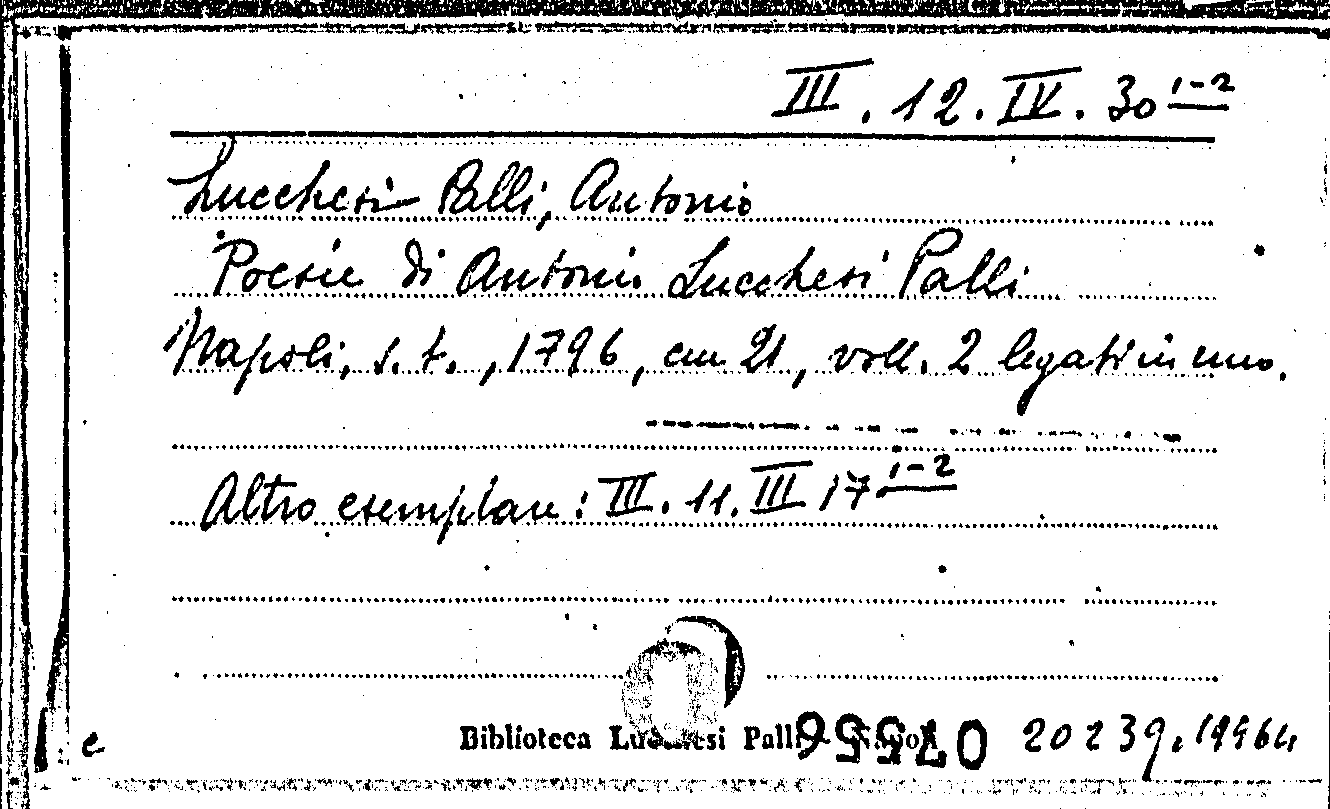 III. 12. IV. 30 1-2
Lucchesi Palli, Antonio
Poesie di Antonio Lucchesi Palli
Napoli, s. t., 1796, cm 21, voll. 2 legati in uno.
Altro esemplare: III. 11. III 17 1-2
c Biblioteca Lucchesi Palli - Napoli 20239.